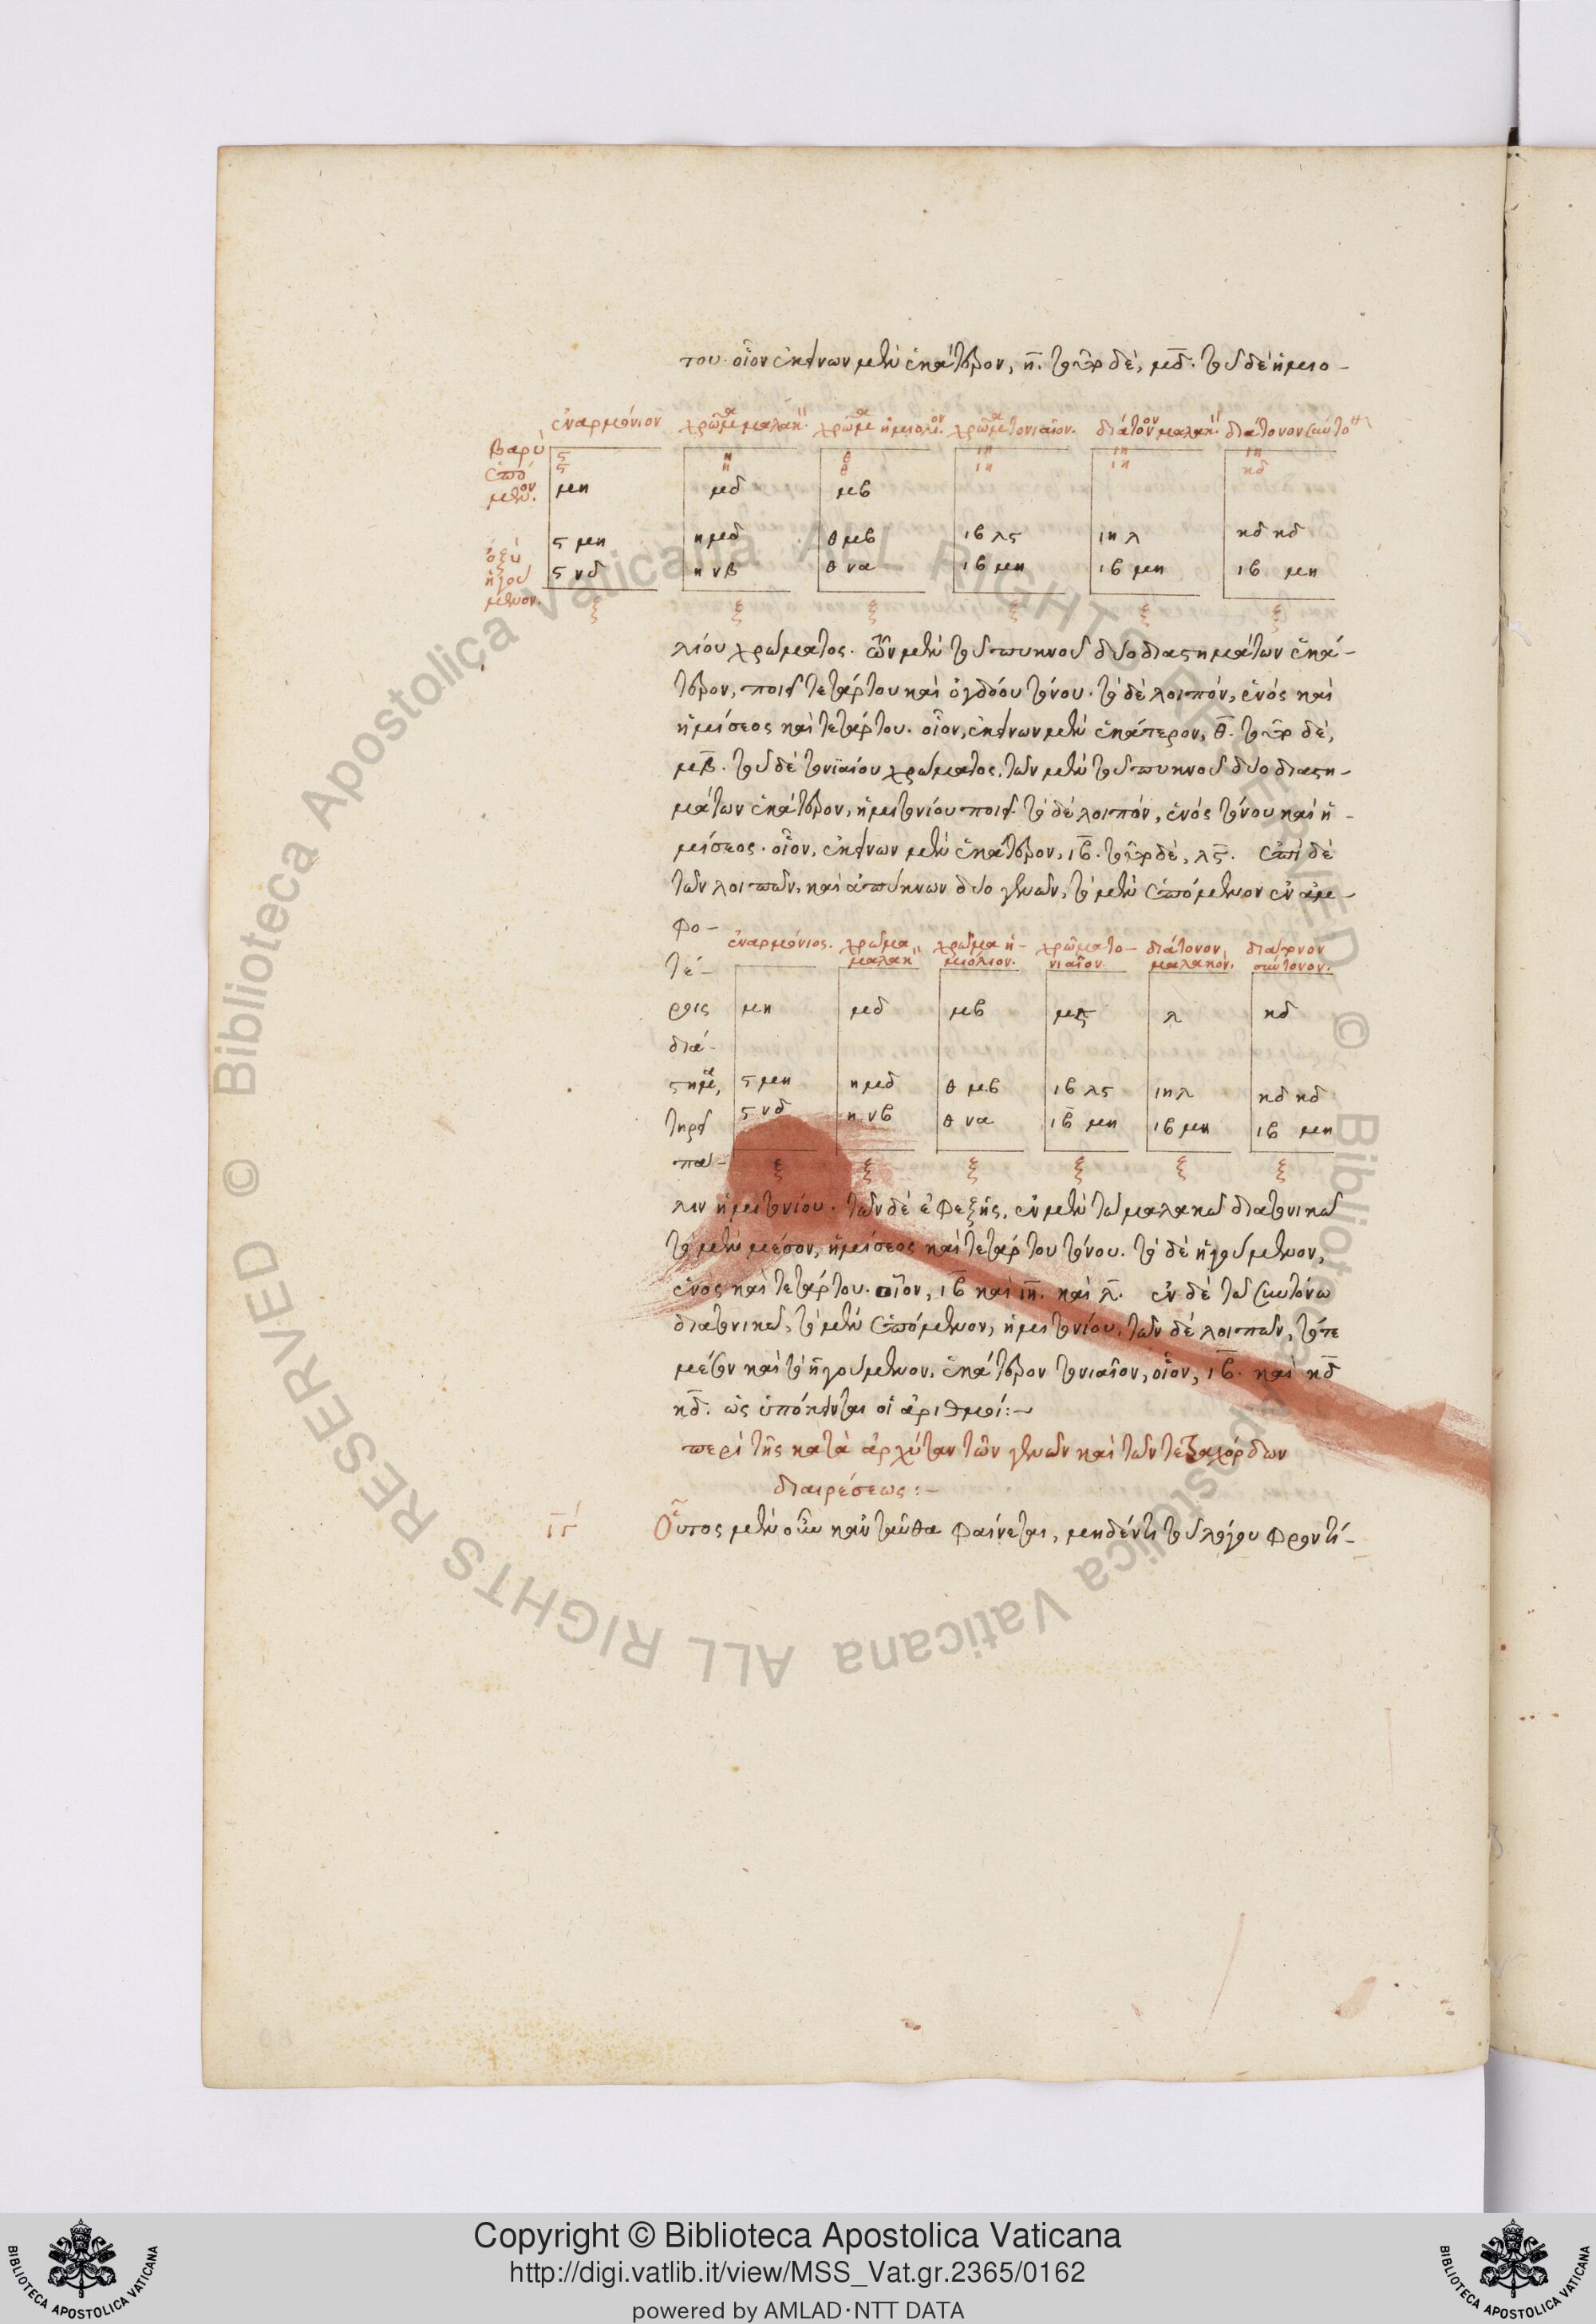 του. οἷον ἐκείνων μὲν ἑκάτερον, η̅. τὸ γὰρ δὲ, μδ̅. τοῦ δὲ ἡμιο-
ἐναρμόνιον χρῶμα μαλακ. χρῶμα ἡμιόλιον. χρῶμα τονιαῖον. διάτονον μαλακ. διάτονον σύντο
βαρὺ ϛ η θ ιη ιη ιη
ἑπό ϛ η θ ιη ιη κδ
μενον. μη μδ μβ
ὀξὺ ϛ μη η μδ θ μβ ιβ λϛ ιη λ κδ κδ
ἡγού ϛ νδ η νβ θ να ιβ μη ιβ μη ιβ μη
μενον. ξ ξ ξ ξ ξ ξ
λίου χρώματος. ὧν μὲν τοῦ πυκνοῦ δύο διαστημάτων ἑκά-
τερον, ποιεῖ τετάρτου καὶ ὀγδόου τόνου. τὸ δὲ λοιπόν, ἑνός καὶ
ἡμίσεος καὶ τετάρτου. οἷον, ἐκείνων μὲν ἑκάτερον, θ̅. δὲ,
μβ̅. τοῦ δὲ τονϊαίου χρώματος, τῶν μὲν τοῦ πυκνοῦ δύο διαστη-
μάτων ἑκάτερον, ἡμιτονίου ποιεῖ. τὸ δὲ λοιπόν, ἑνός τόνου καὶ ἡ-
μίσεος. οἷον, ἐκείνων μὲν ἑκάτερον, ιβ̅. δὲ, λϛ̅. ἐπὶ δὲ
τῶν λοιπῶν, καὶ ἀπύκνων δύο γενῶν, τὸ μὲν ἑπόμενον ἐν ἀμ-
φο-
ἐναρμόνιος. χρῶμα χρῶμα ἡ- χρῶμα το- διάτονον διάτονον
τέ- μαλακ μιόλιον. νιαῖον. μαλακόν. σύντονον.
ροις μη μδ μβ λ κδ
διά-
στημα, ϛ μη η μδ θ μβ ιβ λϛ ιη λ κδ κδ
τηρεῖ ϛ νδ η νβ θ να ιβ μη ιβ μη ιβ μη
πά- ξ ξ ξ ξ ξ ξ
λιν ἡμιτονίου. τῶν δὲ ἐφεξῆς, ἐν μὲν τῶ μαλακῶ διατονικῶ
τὸ μὲν μέσον, ἡμίσεος καὶ τετάρτου τόνου. τὸ δὲ ἡγούμενον,
ἑνος καὶ τετάρτου. οἷον, ιβ̅ καὶ ιη̅. καὶ λ̅. ἐν δὲ τῶ συντόνω
διατονικῶ, τὸ μὲν ἑπόμενον, ἡμιτονίου, τῶν δὲ λοιπῶν, τό τε
μέσον καὶ τὸ ἡγούμενον, ἑκάτερον τονιαῖον, οἷον, ιβ̅. καὶ κδ̅
κδ̅. ὡς ὑπόκεινται οἱ ἀριθμοί:~
περὶ τῆς κατὰ ἀρχύταν τῶν γενῶν καὶ τῶν τετραχόρδων
διαιρέσεως:-
ιγ Οὗτος μὲν οὖν κἀν ταῦθα φαίνεται, μηδέν τι τοῦ λόγου φροντί-
Copyright © Biblioteca Apostolica Vaticana
http://digi.vatlib.it/view/MSS_Vat.gr.2365/0162
powered by AMLAD·NTT DATA
BIBLIOTECA APOSTOLICA VATICANA
BIBLIOTECA APOSTOLICA VATICANA
© Biblioteca Apostolica Vaticana ALL RIGHTS RESERVED
© Biblioteca Apostolica Vaticana ALL RIGHTS RESERVED